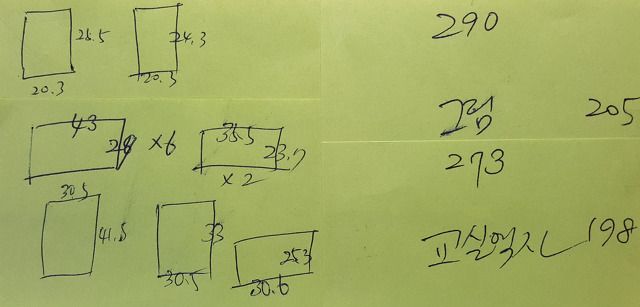 25.5 24.3
20.3 20.3
290
43 28 ×6 35.5 23.7 ×2
그림 205
273
30.5 41.5 33 30.5 25.3 30.6
교실 198